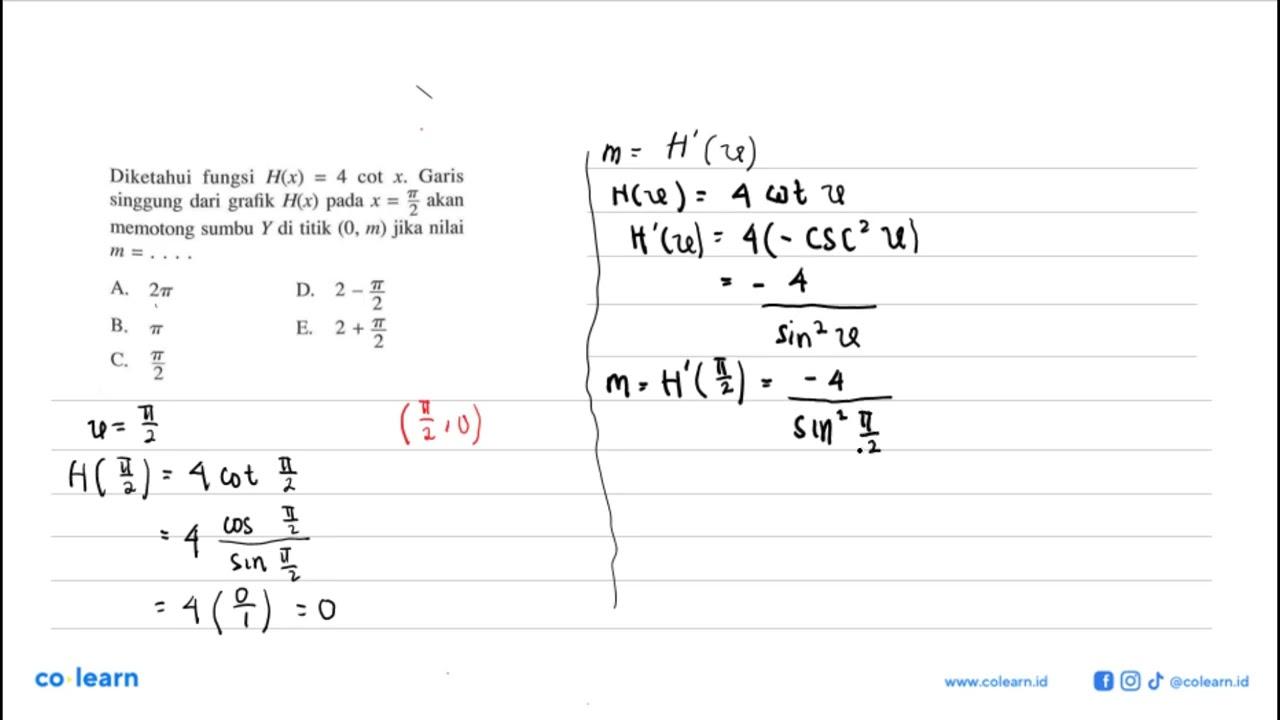 Diketahui fungsi H(x) = 4 cot x. Garis
singgung dari grafik H(x) pada x = π/2 akan
memotong sumbu Y di titik (0, m) jika nilai
m = . . . .
A. 2π D. 2 − π/2
B. π E. 2 + π/2
C. π/2
x = π/2 (π/2, 0)
H(π/2) = 4 cot π/2
= 4 cos π/2 / sin π/2
= 4 (0/1) = 0
m = H'(x)
H(x) = 4 cot x
H'(x) = 4(- csc² x)
= - 4 / sin² x
m = H'(π/2) = -4 / sin² π/2
co learn
www.colearn.id
@colearn.id